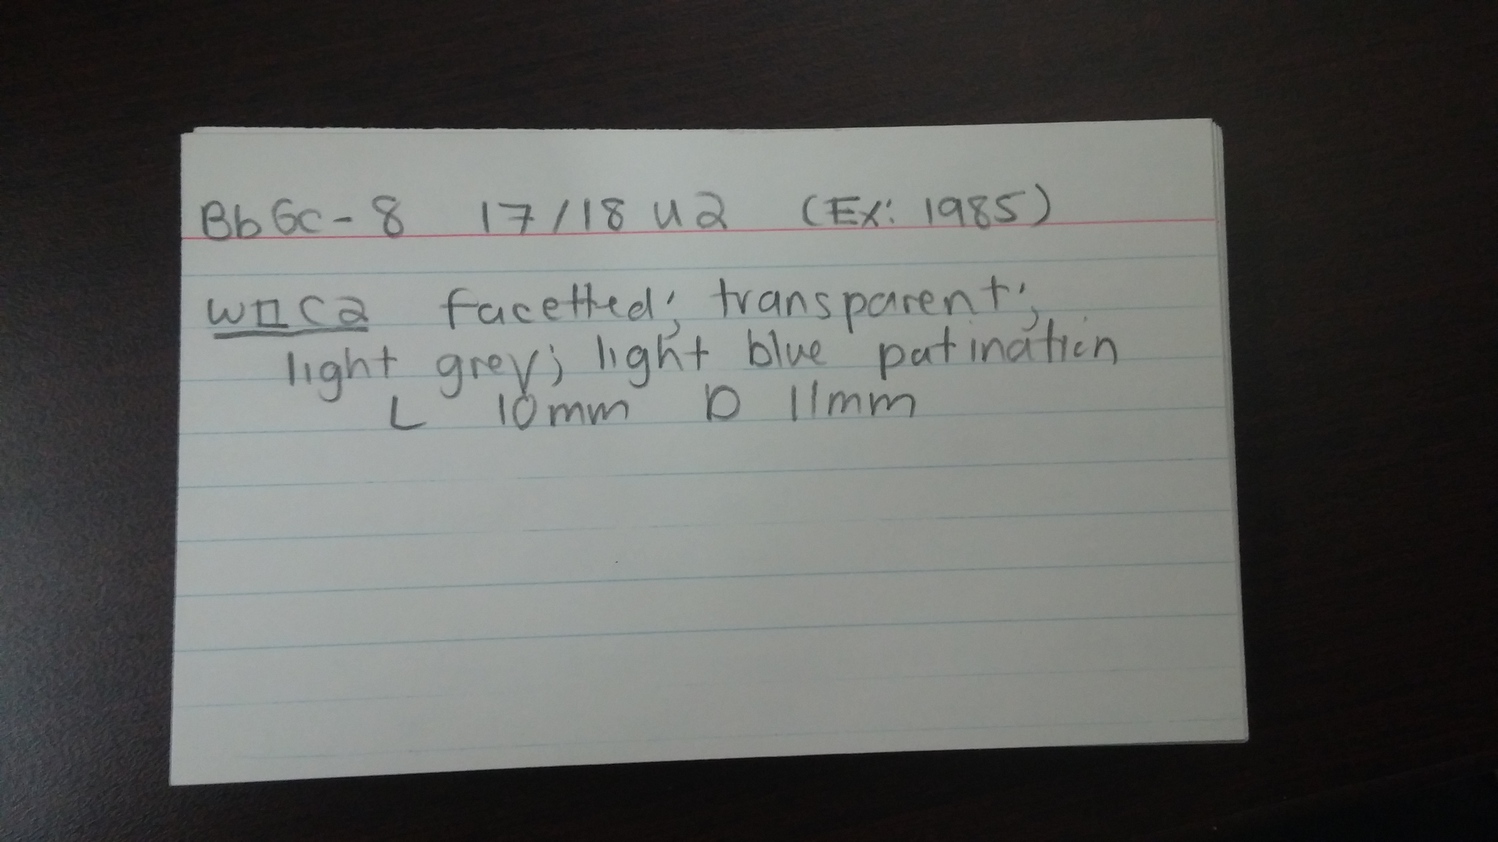 BbGc-8 17/18 u2 (Ex: 1985)
WIIC2 facetted; transparent;
light grey; light blue patination
L 10mm D 11mm